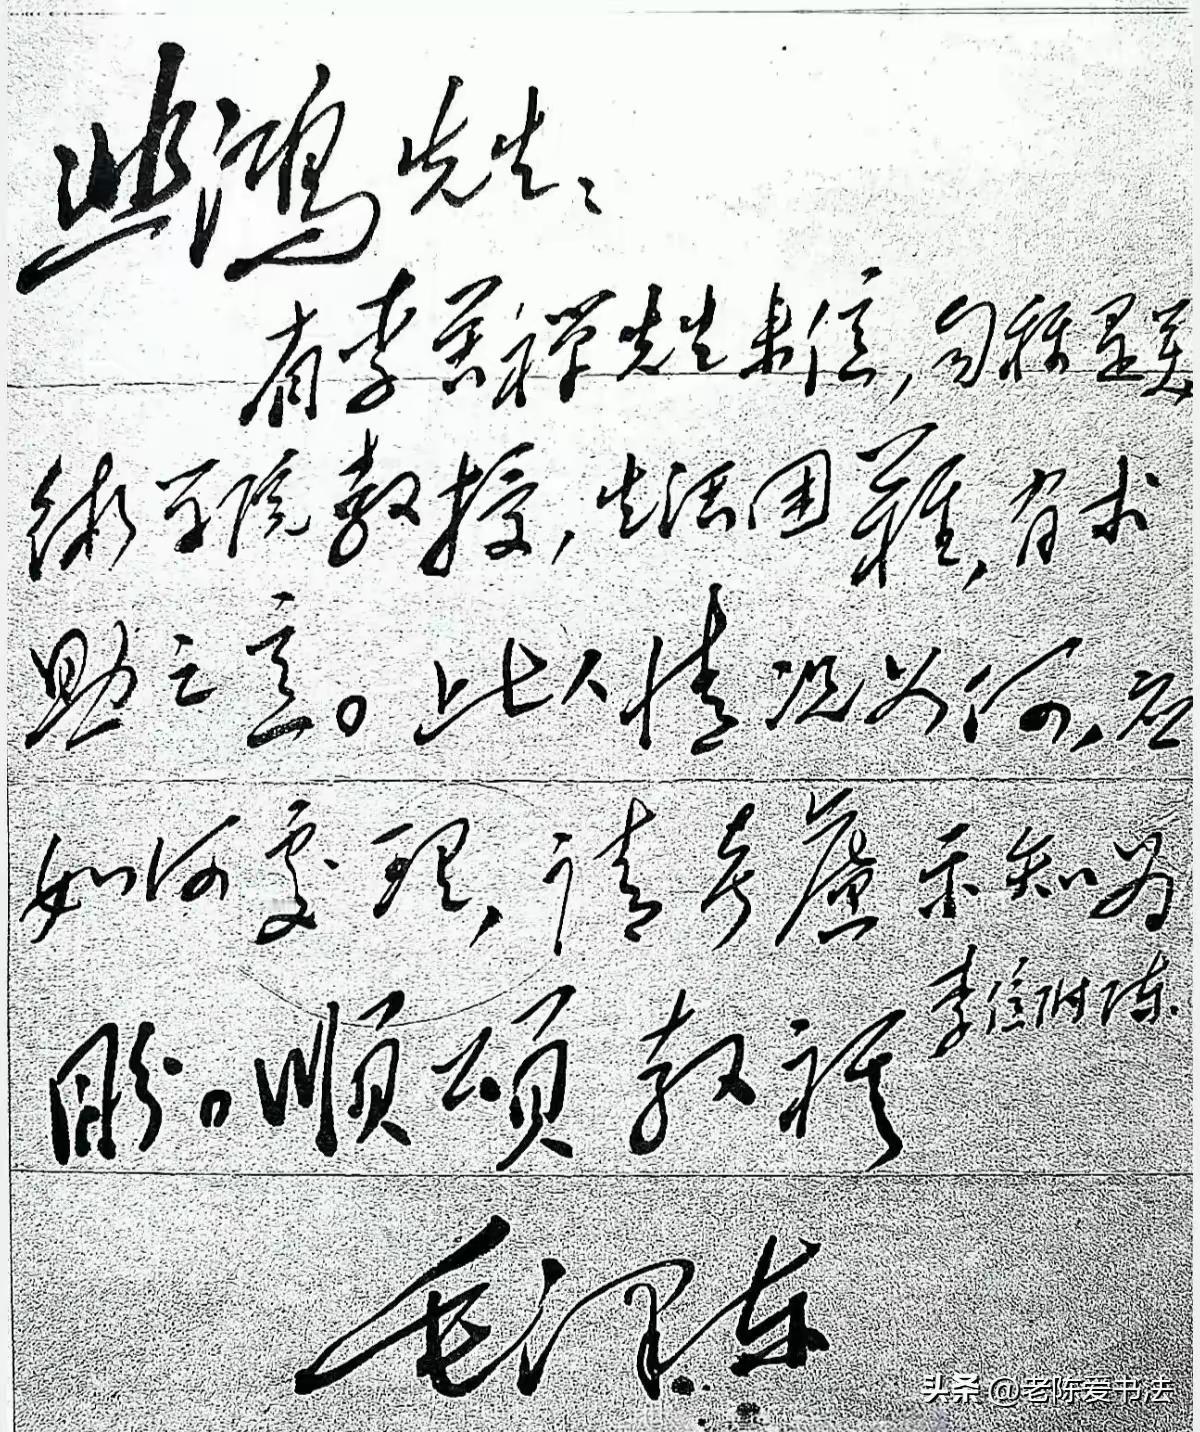 悲鸿先生：
有李苦禅先生来信，自称是美
術学院教授，生活困難，有求
助之意。此人情况如何，应
如何處理，请考慮示知为
盼。順頌教祺
李信附陈.
毛泽东
头条 @老陈爱书法